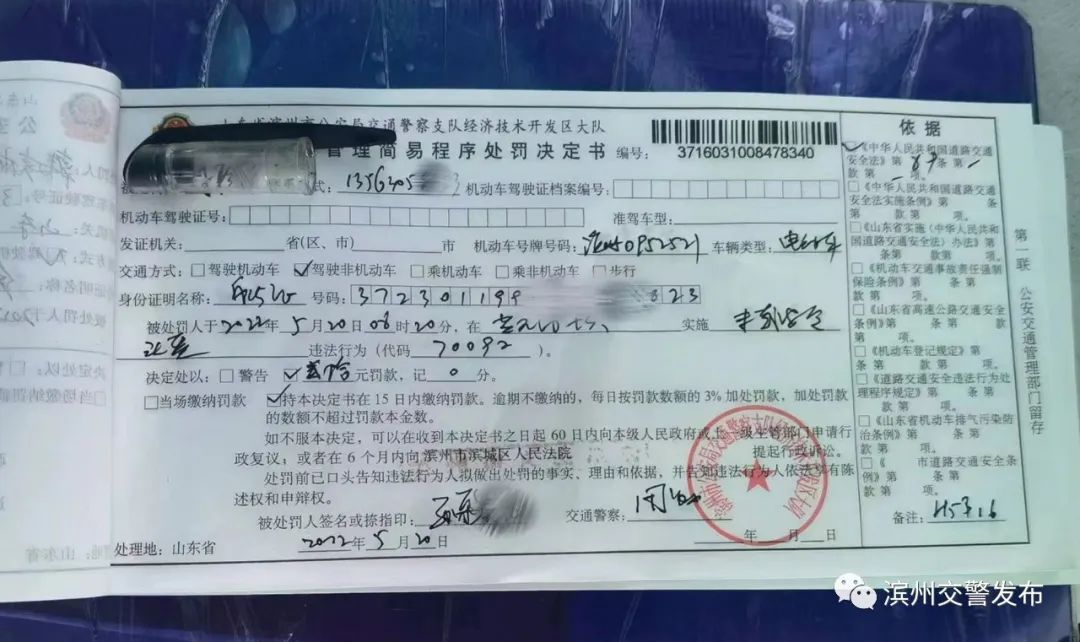 山东省滨州市公安局交通警察支队经济技术开发区大队
管理简易程序处罚决定书 编号: 3716031008478340
式: 机动车驾驶证档案编号:
机动车驾驶证号: 准驾车型:
发证机关: 省(区、市) 市 机动车号牌号码: 车辆类型: 电动车
交通方式: □驾驶机动车 ☑驾驶非机动车 □乘机动车 □乘非机动车 □步行
身份证明名称: 号码: 372301199 823
被处罚人于2022年5月20日08时20分, 在 实施
违法行为 (代码 70092 )。
决定处以: □警告 ☑贰拾元罚款, 记 0 分。
□当场缴纳罚款 ☑持本决定书在 15 日内缴纳罚款。逾期不缴纳的, 每日按罚款数额的 3% 加处罚款, 加处罚款
的数额不超过罚款本金数。
如不服本决定, 可以在收到本决定书之日起 60 日内向本级人民政府或上一级主管部门申请行
政复议; 或者在 6 个月内向 滨州市滨城区人民法院 提起行政诉讼。
处罚前已口头告知违法行为人拟做出处罚的事实、理由和依据, 并告知违法行为人依法享有陈
述权和申辩权。
被处罚人签名或捺指印: 交通警察:
2022年5月20日 年 月 日
处理地: 山东省
依据
☑《中华人民共和国道路交通
安全法》第 89 条第一
款第 项。
□《中华人民共和国道路交通
安全法实施条例》第 条
第 款第 项。
□《山东省实施〈中华人民共和
国道路交通安全法〉办法》第
条第 款第 项。
□《机动车交通事故责任强制
保险条例》第 条第
款第 项。
□《山东省高速公路交通安全
条例》第 条第 款
第 项。
□《机动车登记规定》第
条第 款第 项。
□《道路交通安全违法行为处
理程序规定》第 条
第 款第 项。
□《山东省机动车排气污染防
治条例》第 条第
款第 项。
□《 市道路交通安全条
例》第 条第
款第 项。
备注:
第一联 公安交通管理部门留存
滨州交警发布